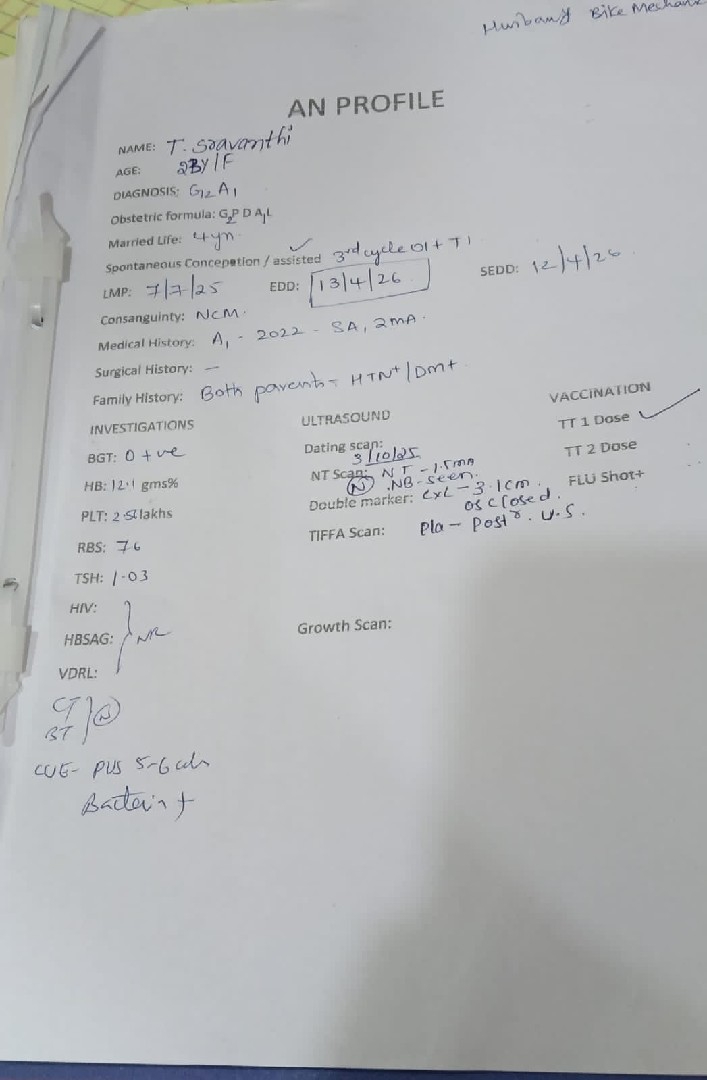 Husband Bike Mechanic
AN PROFILE
NAME: T. Sravanthi
AGE: 23Y/F
DIAGNOSIS: G2 A1
Obstetric formula: G2P D A1L
Married Life: 4yr
Spontaneous Concepetion / assisted ✓ 3rd cycle OI + TI
LMP: 7/7/25 EDD: 13/4/26 SEDD: 12/4/26
Consanguinty: NCM.
Medical History: A1 - 2022 - SA, 2MA.
Surgical History: —
Family History: Both parents - HTN+/DM+
INVESTIGATIONS
BGT: O +ve
HB: 12.1 gms%
PLT: lakhs
RBS: 76
TSH: 1.03
HIV:
HBSAG: } NR
VDRL:
CT
BT } N
CUE- PUS 5-6 cells
Bacteria +
ULTRASOUND
Dating scan:
3/10/25
NT Scan: NT - 1.5mm
N NB - seen.
Double marker: CxL - 3.1cm.
os closed.
TIFFA Scan: Pla - Postr. U.S.
Growth Scan:
VACCINATION
TT 1 Dose ✓
TT 2 Dose
FLU Shot+